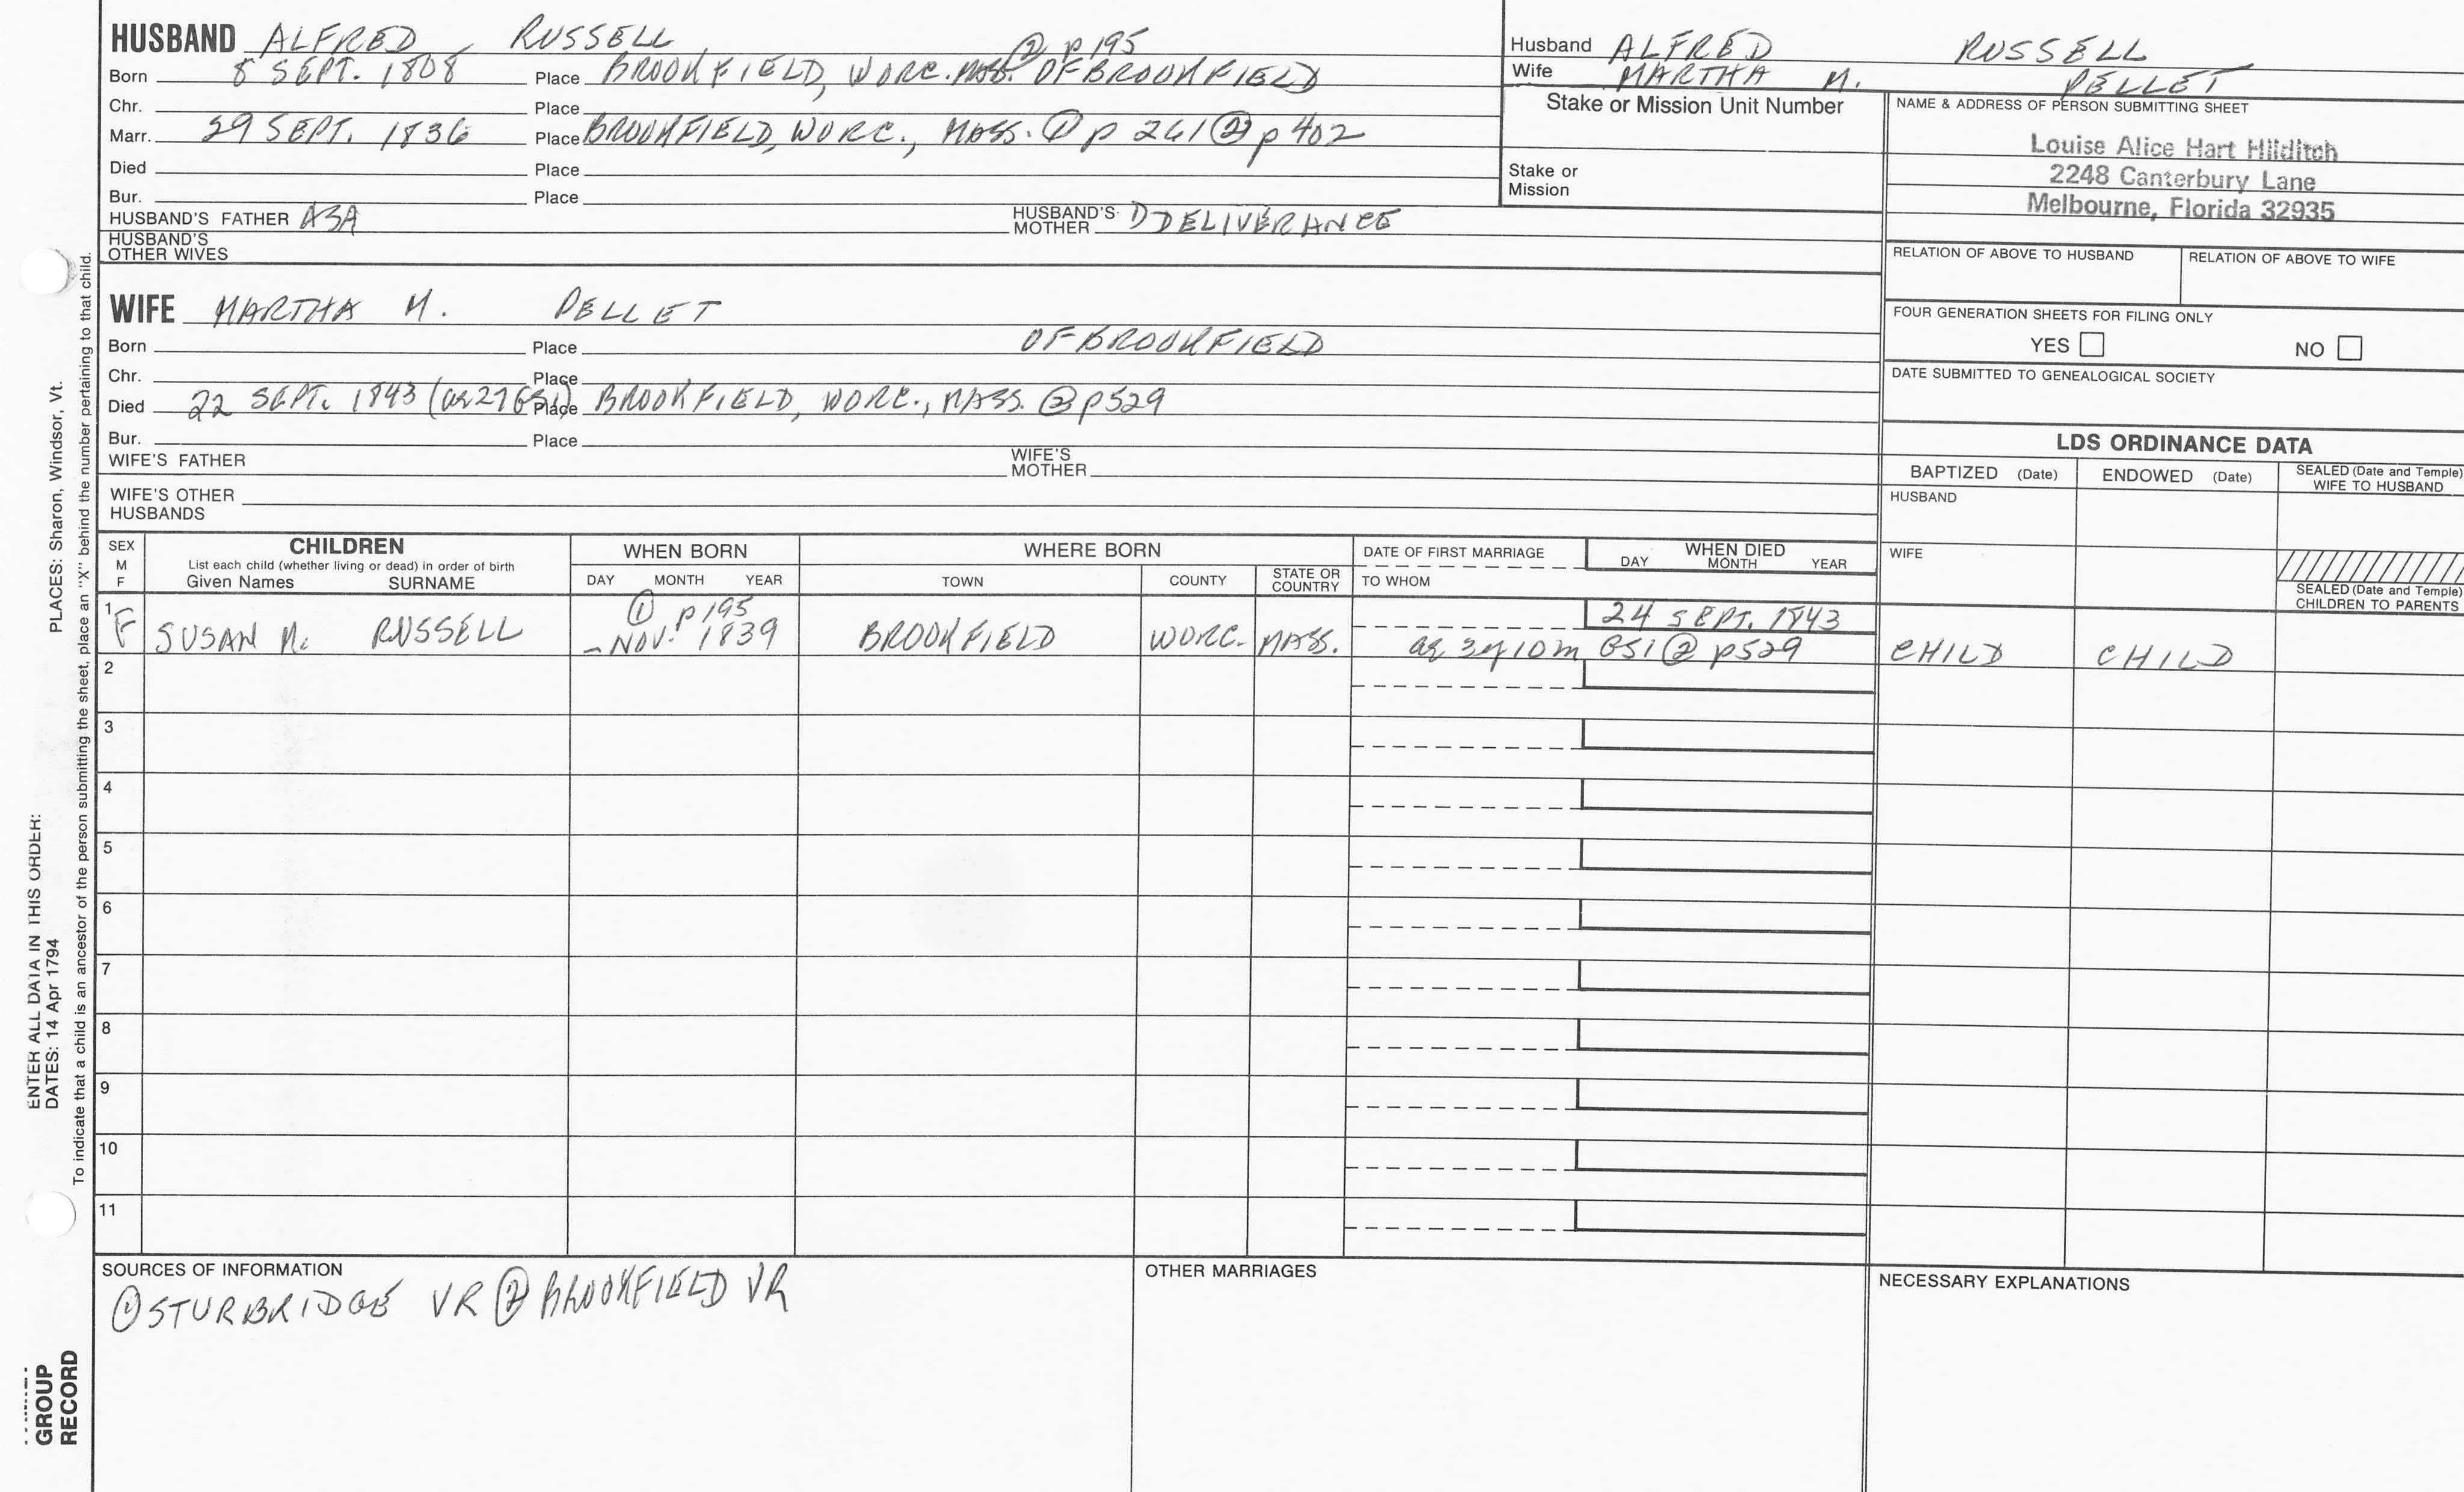 HUSBAND ALFRED RUSSELL ② p195
Born 8 SEPT. 1808 Place BROOKFIELD, WORC. MASS. OF BROOKFIELD
Chr. Place
Marr. 29 SEPT. 1836 Place BROOKFIELD, WORC., MASS. ① p 261 ② p 402
Died Place
Bur. Place
HUSBAND'S FATHER ASA HUSBAND'S MOTHER D DELIVERANCE
HUSBAND'S OTHER WIVES
Husband ALFRED RUSSELL
Wife MARTHA M. PELLET
Stake or Mission Unit Number
Stake or Mission
NAME & ADDRESS OF PERSON SUBMITTING SHEET
Louise Alice Hart Hilditch
2248 Canterbury Lane
Melbourne, Florida 32935
RELATION OF ABOVE TO HUSBAND RELATION OF ABOVE TO WIFE
FOUR GENERATION SHEETS FOR FILING ONLY
YES NO
DATE SUBMITTED TO GENEALOGICAL SOCIETY
WIFE MARTHA M. PELLET
Born Place OF BROOKFIELD
Chr. Place
Died 22 SEPT. 1843 (ag 27 GS1) Place BROOKFIELD, WORC., MASS. ② p529
Bur. Place
WIFE'S FATHER WIFE'S MOTHER
WIFE'S OTHER HUSBANDS
LDS ORDINANCE DATA
BAPTIZED (Date) ENDOWED (Date) SEALED (Date and Temple) WIFE TO HUSBAND
HUSBAND
WIFE
SEALED (Date and Temple) CHILDREN TO PARENTS
SEX M F
CHILDREN
List each child (whether living or dead) in order of birth
Given Names SURNAME
WHEN BORN
DAY MONTH YEAR
WHERE BORN
TOWN COUNTY STATE OR COUNTRY
DATE OF FIRST MARRIAGE
TO WHOM
WHEN DIED
DAY MONTH YEAR
① p195 24 SEPT. 1843
1 F SUSAN M. RUSSELL – NOV. 1839 BROOKFIELD WORC. MASS. ag 3y 10m GS1 ② p529 CHILD CHILD
2
3
4
5
6
7
8
9
10
11
SOURCES OF INFORMATION
① STURBRIDGE VR ② BROOKFIELD VR
OTHER MARRIAGES
NECESSARY EXPLANATIONS
ENTER ALL DATA IN THIS ORDER:
DATES: 14 Apr 1794 PLACES: Sharon, Windsor, Vt.
To indicate that a child is an ancestor of the person submitting the sheet, place an "X" behind the number pertaining to that child.
GROUP
RECORD